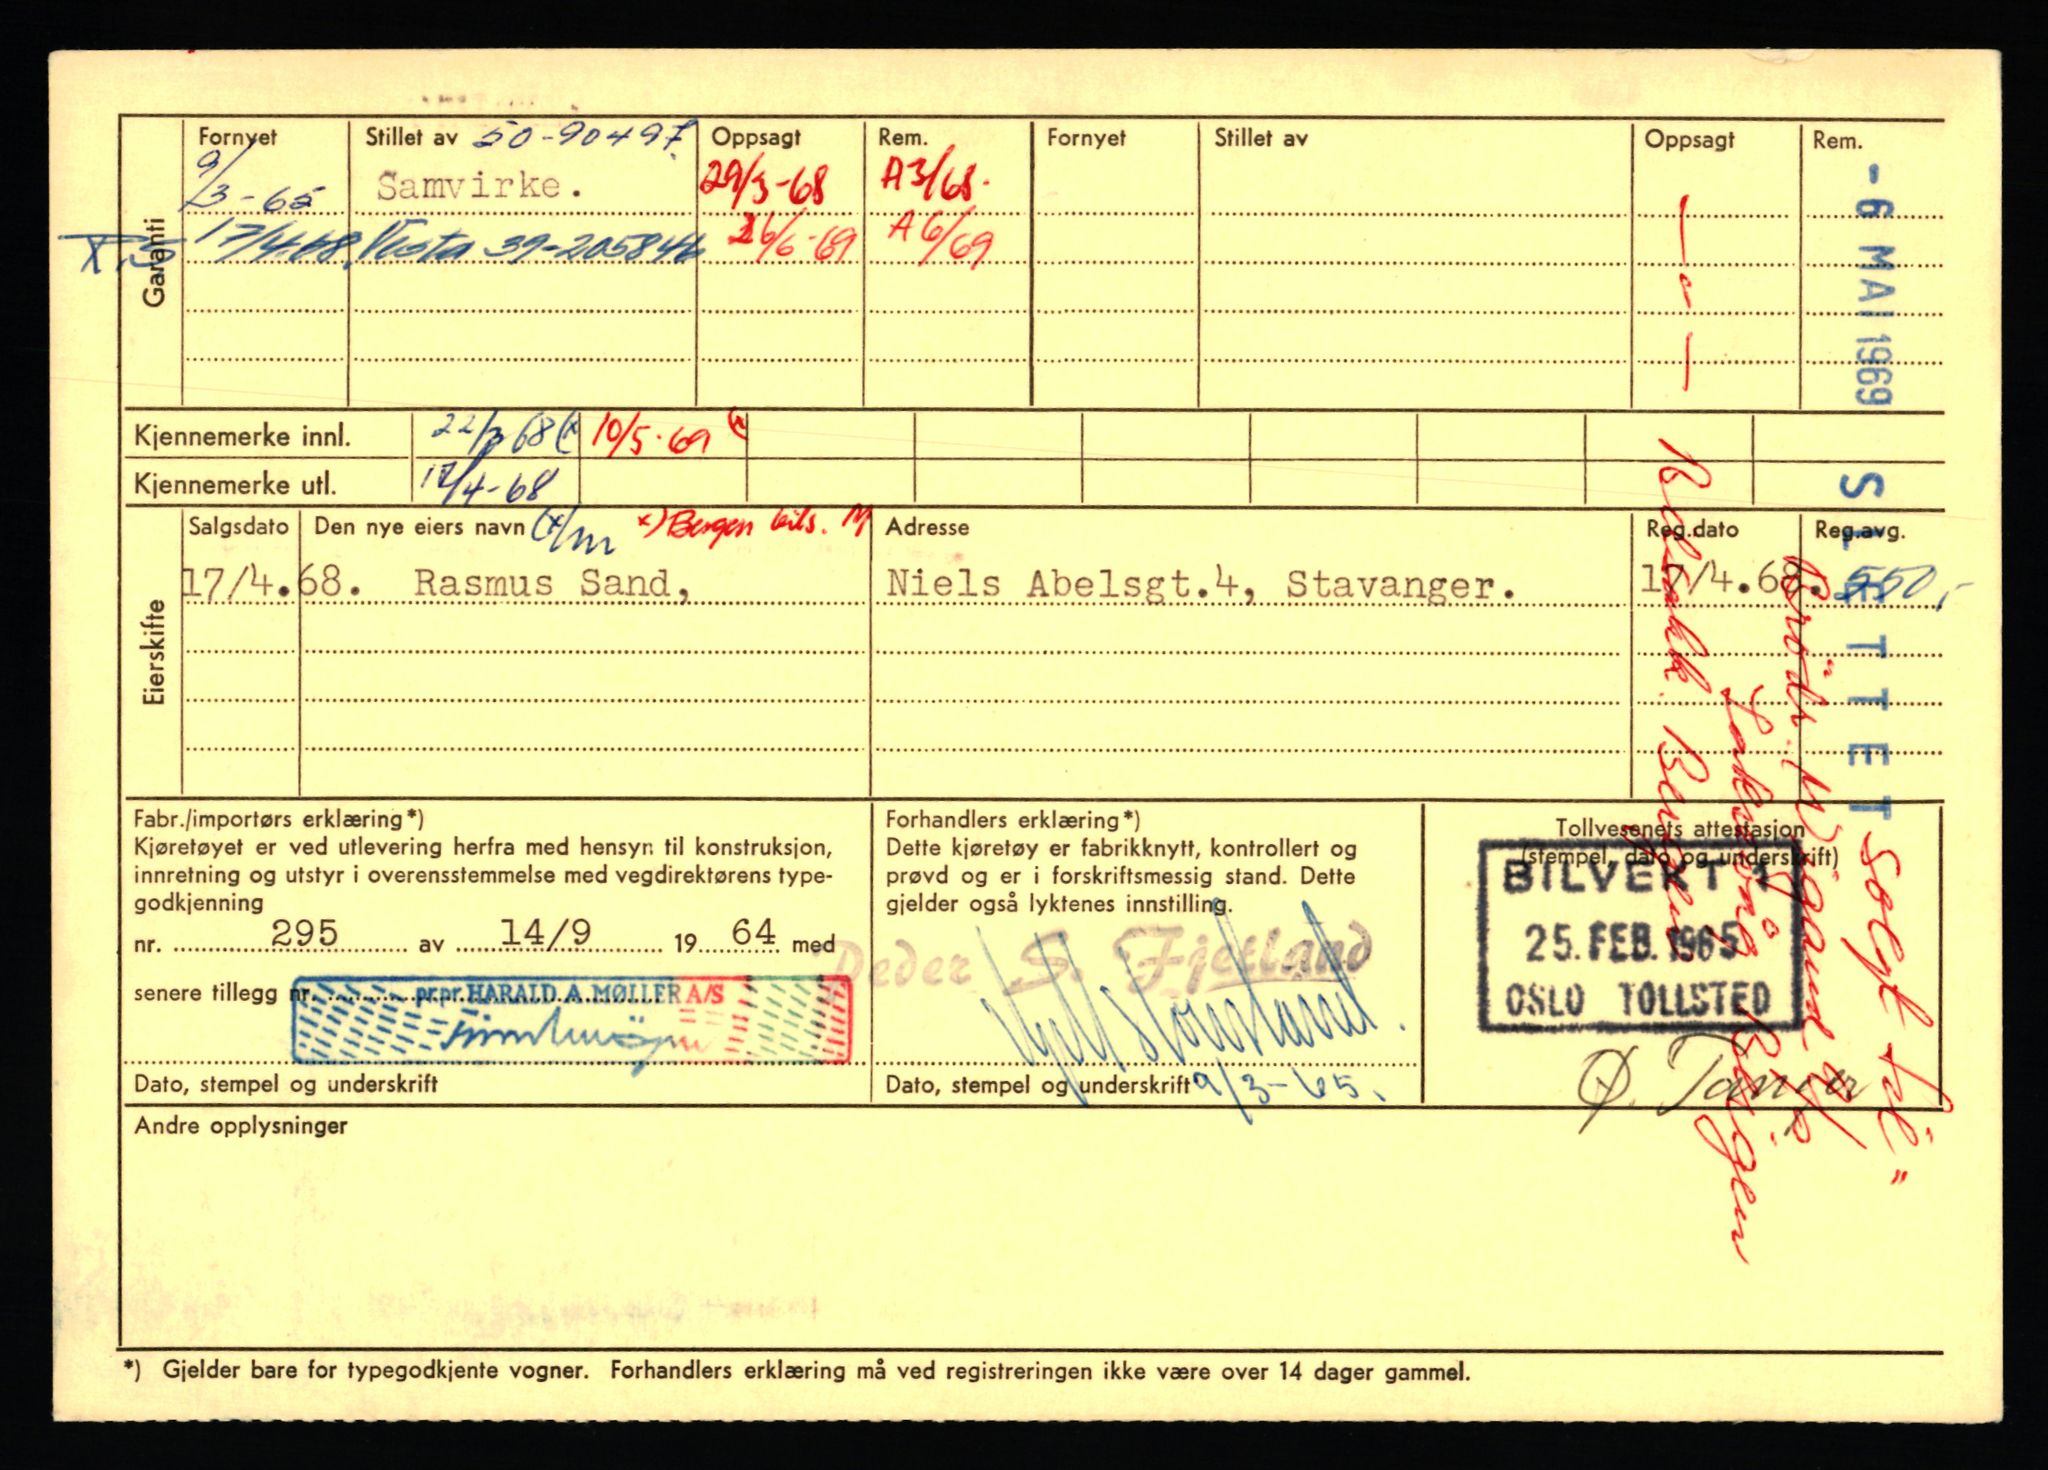 Garanti
Fornyet Stillet av 50-90497. Oppsagt Rem. Fornyet Stillet av Oppsagt Rem.
9/3-65 Samvirke. 29/3-68 A3/68.
17/4-68. Vesta 39-205846 26/6-69 A6/69
- 6 MAI 1969
SLETTET
Kjennemerke innl. 22/3 68 (x 10/5-69 x
Kjennemerke utl. 17/4-68
Eierskifte
Salgsdato Den nye eiers navn (x/m x) Bergen bils. M Adresse Reg.dato Reg.avg.
17/4.68. Rasmus Sand, Niels Abelsgt.4, Stavanger. 17/4.68. 550,-
solgt til
Brödr. Wigand A/S
Laksevåg Bergen
Bergen
Fabr./importørs erklæring*)
Kjøretøyet er ved utlevering herfra med hensyn til konstruksjon,
innretning og utstyr i overensstemmelse med vegdirektørens type-
godkjenning
nr. 295 av 14/9 1964 med
senere tillegg nr.
pr.pr. HARALD A. MØLLER A/S
Dato, stempel og underskrift
Forhandlers erklæring*)
Dette kjøretøy er fabrikknytt, kontrollert og
prøvd og er i forskriftsmessig stand. Dette
gjelder også lyktenes innstilling.
Peder S. Fjetland
Dato, stempel og underskrift 9/3-65.
Tollvesenets attestasjon
(stempel, dato og underskrift)
BILVEKT 1
25. FEB. 1965
OSLO TOLLSTED
Ø. Tanger
Andre opplysninger
*) Gjelder bare for typegodkjente vogner. Forhandlers erklæring må ved registreringen ikke være over 14 dager gammel.